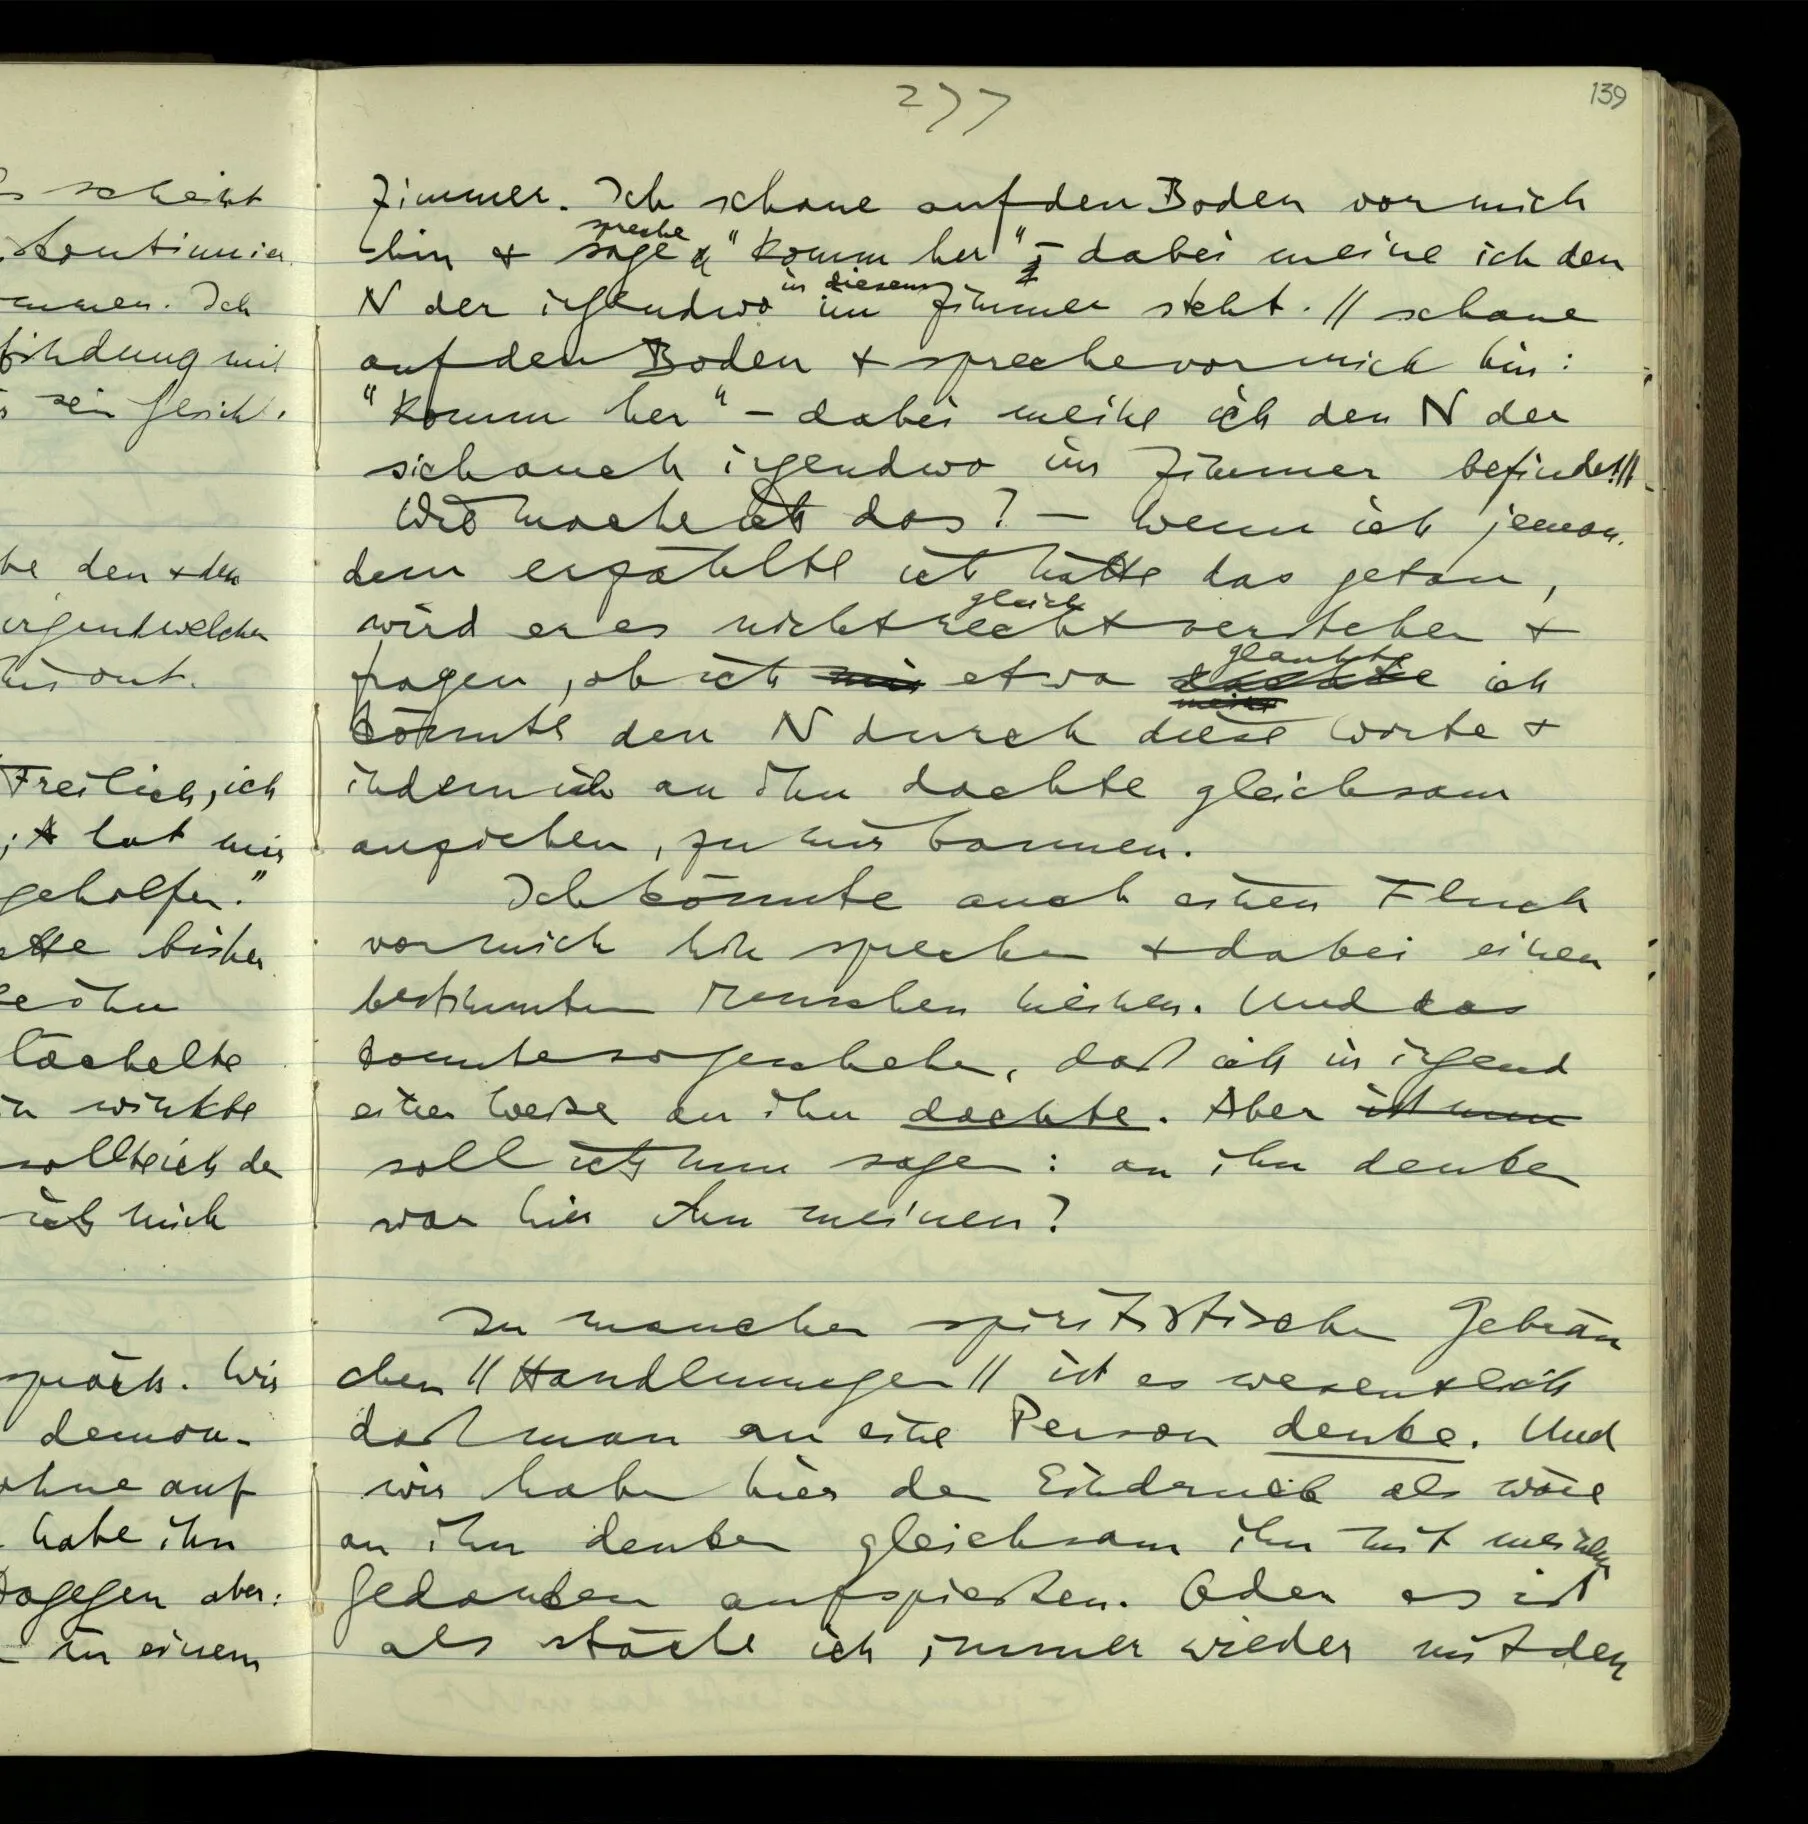 277
139
Zimmer. Ich schaue auf den Boden vor mich
spreche
hin & sage "Komm her" – dabei meine ich den
in diesem
N der irgendwo im Zimmer steht. // schaue
auf den Boden & spreche vor mich hin:
"Komm her" – dabei meine ich den N der
sich auch irgendwo im Zimmer befindet.//
Wie mache ich das? – Wenn ich jeman-
dem erzählte ich hätte das getan,
gleich
wird er es nicht recht verstehen &
glaubte
fragen, ob ich mir etwa dachte ich
meine
könnte den N durch diese Worte &
indem ich an ihn dachte gleichsam
anziehen, zu mir bannen.
Ich könnte auch einen Fluch
vor mich hin sprechen & dabei einen
bestimmten Menschen meinen. Und das
konnte so geschehen, daß ich in irgend
einer Weise an ihn dachte. Aber ist nun
soll ich nun sagen: an ihn denken
war hier ihn meinen?
In manchen spiritistischen Gebräu
chen // Handlungen // ist es wesentlich
daß man an eine Person denke. Und
wir haben hier den Eindruck als wäre
an ihn denken gleichsam ihn mit meinen
Gedanken aufspießen. Oder es ist
als stäche ich immer wieder mit den
scheint
kontinuier
Ich
findung mit
sein Gesicht.
den & den
irgendwelchen
Freilich, ich
; A hat mir
geholfen."
bisher
ihn
lächelte
winkte
sollte ich den
ich mich
Wir
demon-
ohne auf
habe ihn
Dagegen aber:
– in einem